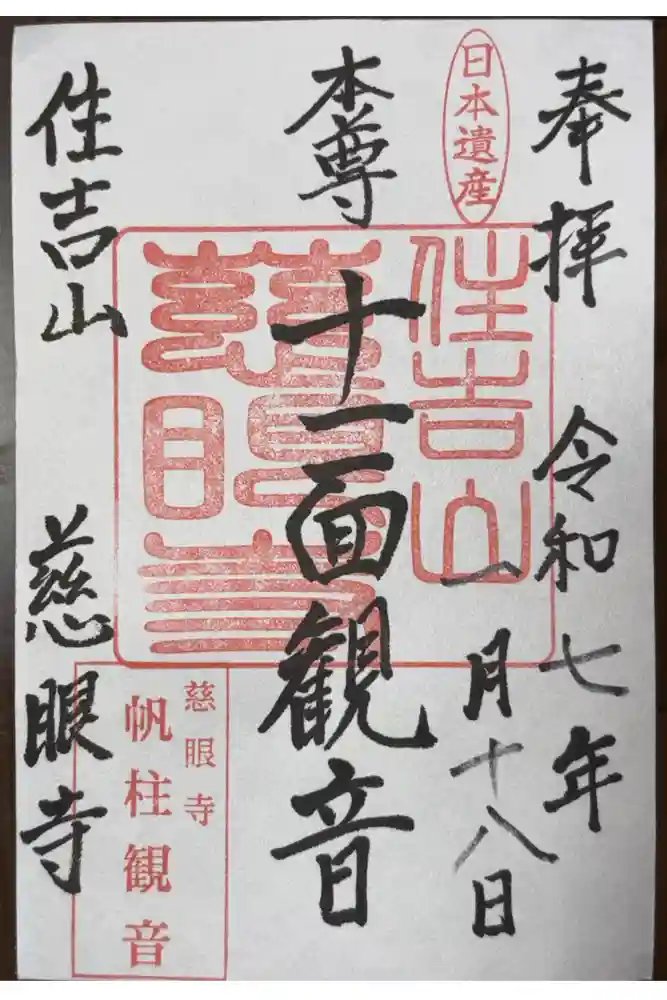 奉拝 令和七年
一月十八日
日本遺産
住吉山
慈眼寺
本尊 十一面観音
慈眼寺
帆柱観音
住吉山 慈眼寺